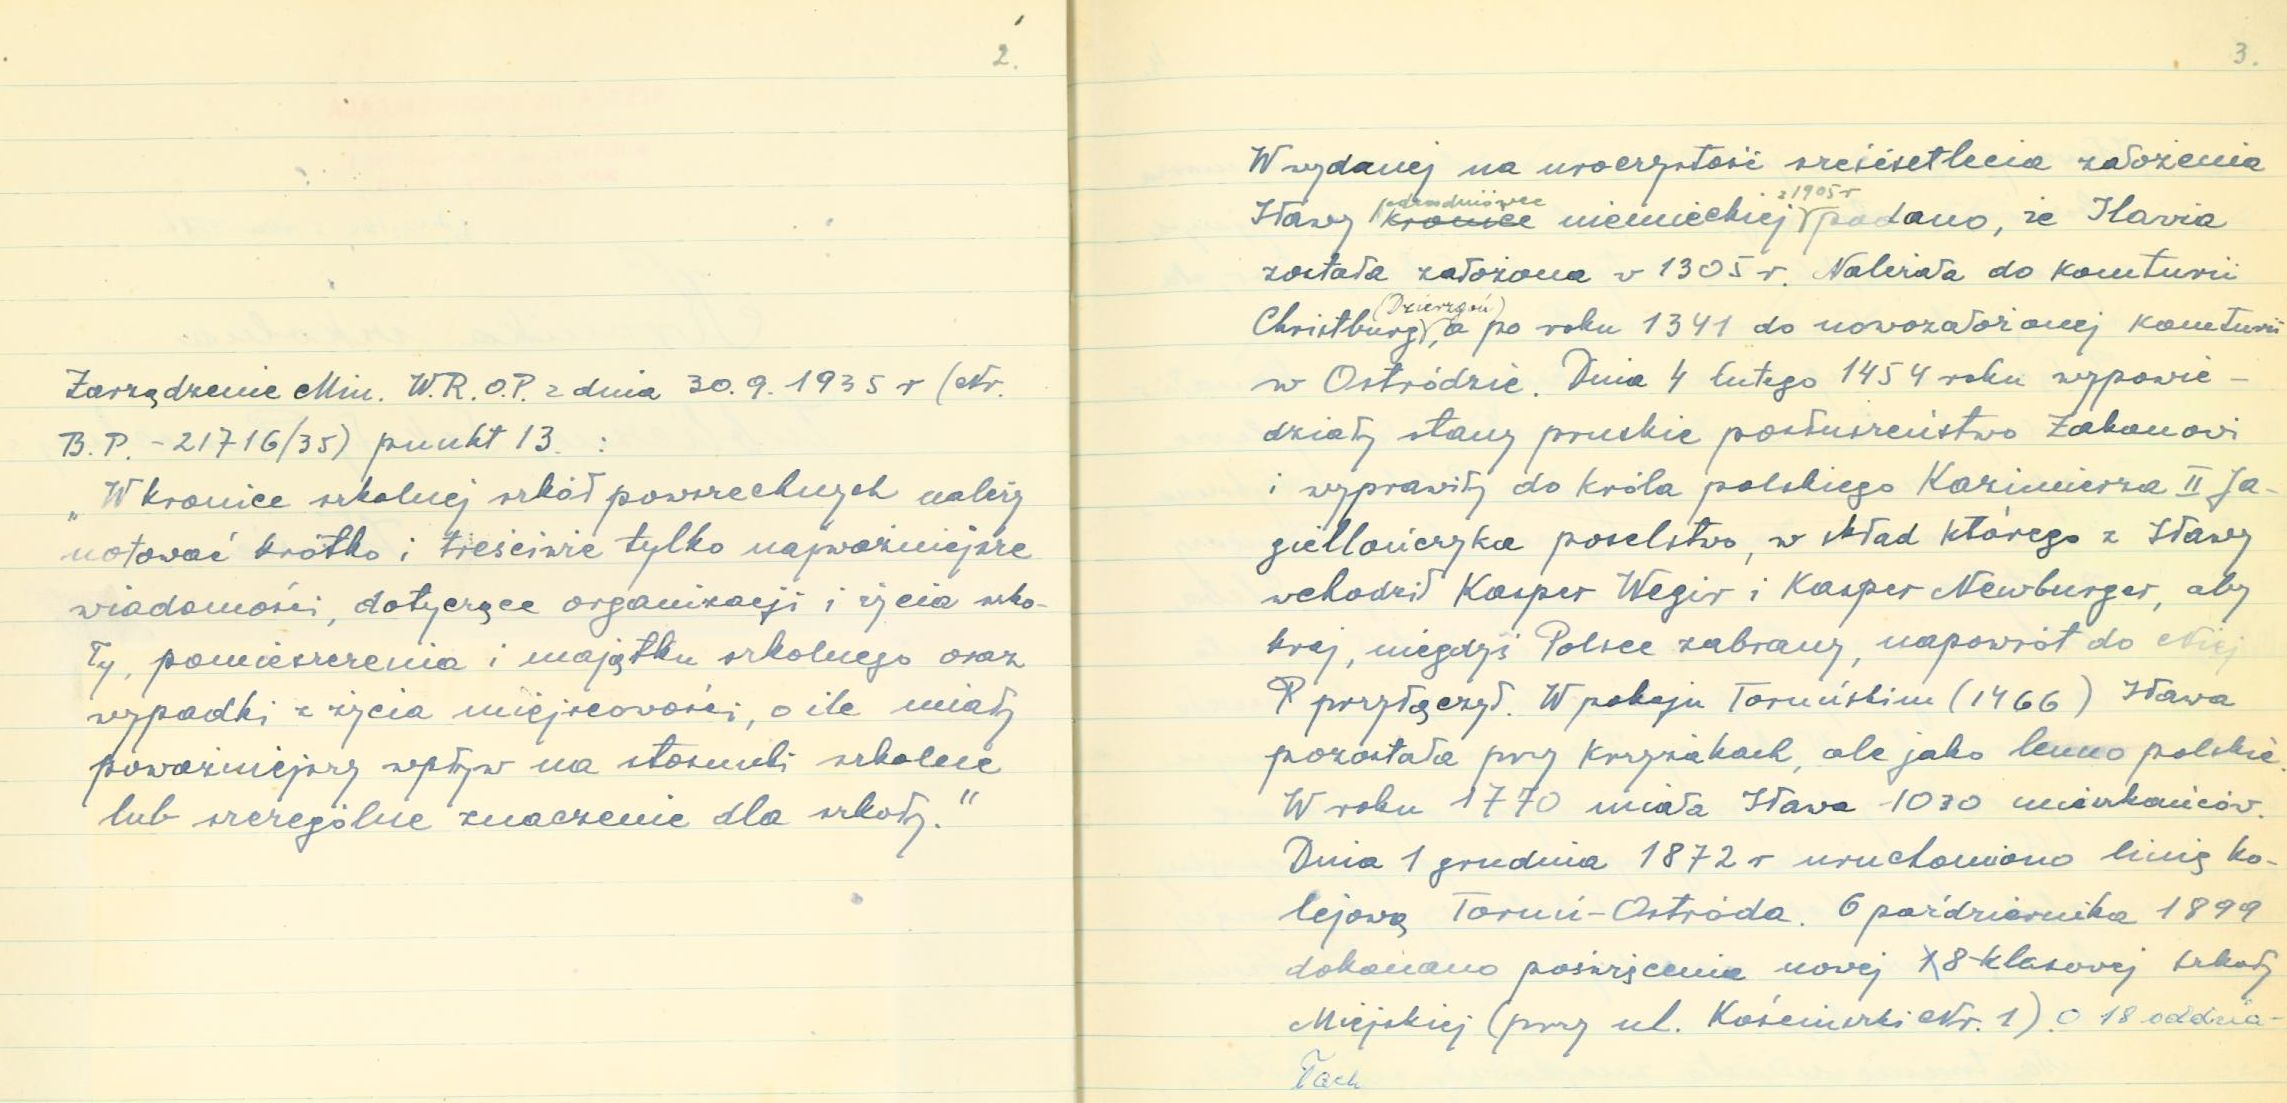 2.
Zarządzenie Min. W.R.O.P. z dnia 30.9.1935 r (Nr.
B.P. - 21716/35) punkt 13. :
„W kronice szkolnej szkół powszechnych należy
notować krótko i treściwie tylko najważniejsze
wiadomości, dotyczące organizacji i życia szko-
ły, pomieszczenia i majątku szkolnego oraz
wypadki z życia miejscowości, o ile miały
poważniejszy wpływ na stosunki szkolne
lub szczególne znaczenie dla szkoły."
3.
W wydanej na uroczystość sześćsetlecia założenia
z 1905 r
Iławy kronice niemieckiej podano, że Ilavia
została założona w 1305 r. Należała do komturii
(Dzierzgoń)
Christburg, a po roku 1341 do nowozałożonej komturii
w Ostródzie. Dnia 4 lutego 1454 roku wypowie-
działy stany pruskie posłuszeństwo Zakonowi
i wyprawiły do króla polskiego Kazimierza II Ja-
giellończyka poselstwo, w skład którego z Iławy
wchodził Kasper Wegir i Kasper Newburger, aby
kraj, niegdyś Polsce zabrany, napowrót do Niej
przyłączył. W pokoju Toruńskim (1466) Iława
pozostała przy Krzyżakach, ale jako lenno polskie.
W roku 1770 miała Iława 1030 mieszkańców.
Dnia 1 grudnia 1872 r uruchomiono linię ko-
lejową Toruń-Ostróda. 6 października 1899
dokonano poświęcenia nowej 8-klasowej szkoły
Miejskiej (przy ul. Kościuszki Nr. 1). O 18 oddzia-
łach